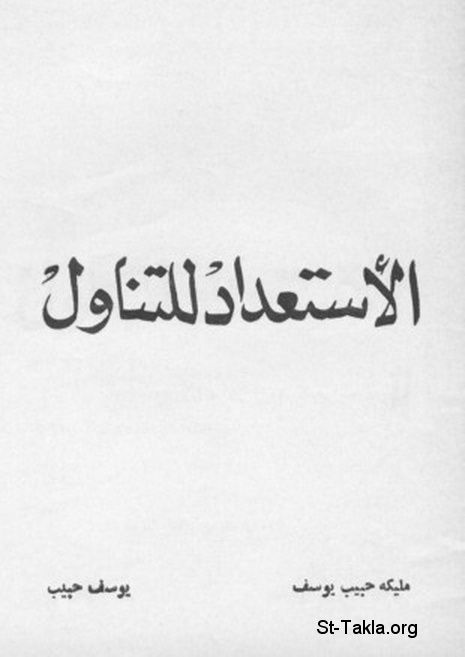 الأستعداد للتناول
مليكه حبيب يوسف
يوسف حبيب
St-Takla.org